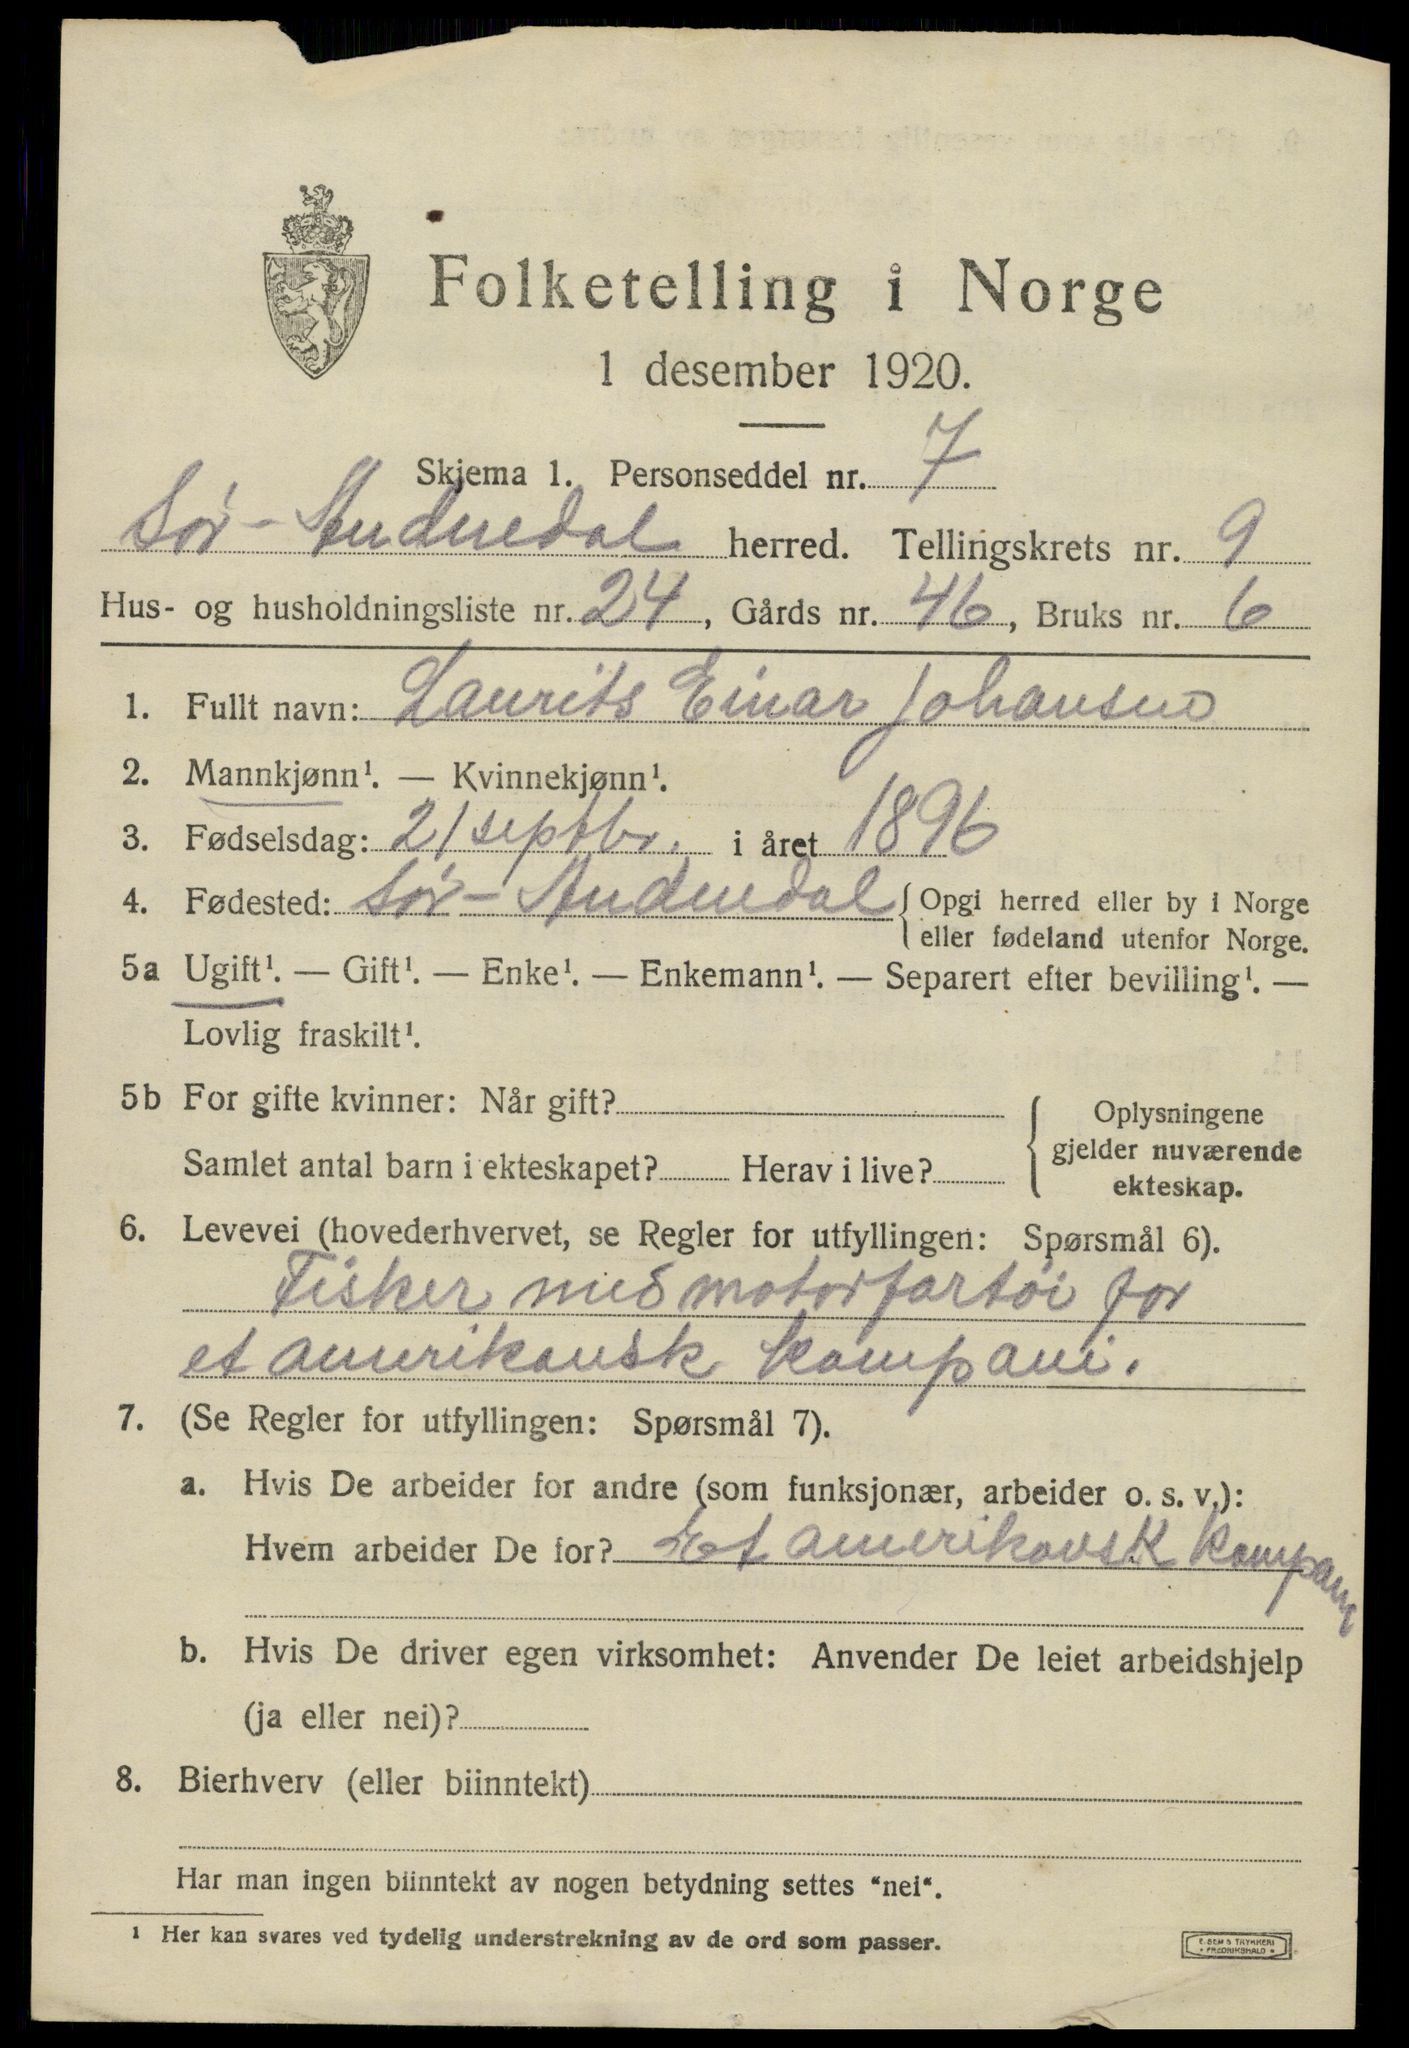 Folketelling i Norge
1 desember 1920.
Skjema 1. Personseddel nr. 7
Sør-Audnedal herred. Tellingskrets nr. 9
Hus- og husholdningsliste nr. 24, Gårds nr. 46, Bruks nr. 6
1. Fullt navn: Laurits Einar Johansen
2. Mannkjønn¹. — Kvinnekjønn¹.
3. Fødselsdag: 21 septbr. i året 1896
4. Fødested: Sør-Audnedal { Opgi herred eller by i Norge
eller fødeland utenfor Norge.
5a Ugift¹. — Gift¹. — Enke¹. — Enkemann¹. — Separert efter bevilling¹. —
Lovlig fraskilt¹.
5b For gifte kvinner: Når gift?
Samlet antal barn i ekteskapet? Herav i live?
Oplysningene
gjelder nuværende
ekteskap.
6. Levevei (hovederhvervet, se Regler for utfyllingen: Spørsmål 6).
Fisker med motorfartøi for
et amerikansk kompani.
7. (Se Regler for utfyllingen: Spørsmål 7).
a. Hvis De arbeider for andre (som funksjonær, arbeider o. s. v.):
Hvem arbeider De for? Et amerikansk kompani
b. Hvis De driver egen virksomhet: Anvender De leiet arbeidshjelp
(ja eller nei)?
8. Bierhverv (eller biinntekt)
Har man ingen biinntekt av nogen betydning settes "nei".
¹ Her kan svares ved tydelig understrekning av de ord som passer.
E. SEM'S TRYKKERI
• FREDRIKSHALD •